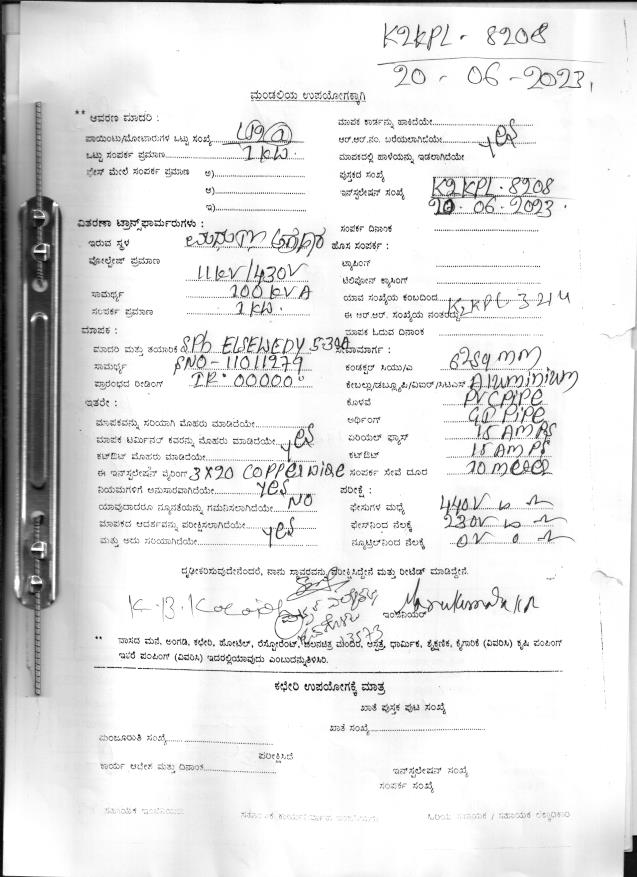 K2KPL - 8208
20 - 06 - 2023
ಮಂಡಲಿಯ ಉಪಯೋಗಕ್ಕಾಗಿ
** ಆವರಣ ಮಾದರಿ :
ಮಾಪಕ ಕಾರ್ಡನ್ನು ಹಾಕಿದೆಯೇ
ಪಾಯಿಂಟು/ಮೋಟಾರುಗಳ ಒಟ್ಟು ಸಂಖ್ಯೆ
ಆರ್.ಆರ್.ನಂ. ಬರೆಯಲಾಗಿದೆಯೇ yes
ಒಟ್ಟು ಸಂಪರ್ಕ ಪ್ರಮಾಣ 1 KW.
ಮಾಪಕದಲ್ಲಿ ಹಾಳೆಯನ್ನು ಇಡಲಾಗಿದೆಯೇ
ಫೇಸ್ ಮೇಲೆ ಸಂಪರ್ಕ ಪ್ರಮಾಣ ಅ)
ಪುಸ್ತಕದ ಸಂಖ್ಯೆ
ಆ)
ಇನ್ಸ್ಟಲೇಷನ್ ಸಂಖ್ಯೆ K2KPL-8208
ಇ)
20 06-2023.
ವಿತರಣಾ ಟ್ರಾನ್ಸ್‌ಫಾರ್ಮರುಗಳು :
ಸಂಪರ್ಕ ದಿನಾಂಕ
ಇರುವ ಸ್ಥಳ
ಹೊಸ ಸಂಪರ್ಕ :
ವೋಲ್ಟೇಜ್ ಪ್ರಮಾಣ 11KV/430V
ಟ್ಯಾಪಿಂಗ್
ಟೆಲಿಫೋನ್ ಕ್ಯಾಸಿಂಗ್
ಸಾಮರ್ಥ್ಯ 100 KVA
ಯಾವ ಸಂಖ್ಯೆಯ ಕಂಬದಿಂದ
ಸಂಪರ್ಕ ಪ್ರಮಾಣ 1 KW.
ಈ ಆರ್.ಆರ್. ಸಂಖ್ಯೆಯ ನಂತರದ್ದು K2KPL 3214
ಮಾಪಕ :
ಮಾಪಕ ಓದುವ ದಿನಾಂಕ
ಮಾದರಿ ಮತ್ತು ತಯಾರಿಕೆ SPh ELSEWEDY 5-30A
ಸೇವಾಮಾರ್ಗ :
ಸಾಮರ್ಥ್ಯ SNO-11011279
ಕಂಡಕ್ಟರ್ ಸಿಯು/ಎ 6259 mm
ಪ್ರಾರಂಭದ ರೀಡಿಂಗ್ IR: 00000
ಕೇಬಲ್ಲು/ಡಬ್ಲ್ಯೂಪಿ/ವಿಐಆರ್/ಸಿಟಿಎಸ್ Aluminium
ಕೊಳವೆ PVC PiPe
ಇತರೇ :
ಅರ್ಥಿಂಗ್ GI PiPe
ಮಾಪಕವನ್ನು ಸರಿಯಾಗಿ ಮೊಹರು ಮಾಡಿದೆಯೇ
ಏರಿಯಲ್ ಫ್ಯೂಸ್ 15 AMPS
ಮಾಪಕ ಟರ್ಮಿನಲ್ ಕವರನ್ನು ಮೊಹರು ಮಾಡಿದೆಯೇ yes
ಕಟ್‌ಔಟ್ 15 AMPS
ಕಟ್‌ಔಟ್ ಮೊಹರು ಮಾಡಿದೆಯೇ
ಈ ಇನ್ಸ್ಟಲೇಷನ್ ವೈರಿಂಗ್ 3X20 COPPER WIRE
ಸಂಪರ್ಕ ಸೇವೆ ದೂರ 10 meter
ನಿಯಮಗಳಿಗೆ ಅನುಸಾರವಾಗಿದೆಯೇ yes
ಪರೀಕ್ಷೆ :
ಯಾವುದಾದರೂ ನ್ಯೂನತೆಯನ್ನು ಗಮನಿಸಲಾಗಿದೆಯೇ NO
ಫೇಸುಗಳ ಮಧ್ಯೆ 440V
ಮಾಪಕದ ಆದರ್ಶವನ್ನು ಪರೀಕ್ಷಿಸಲಾಗಿದೆಯೇ yes
ಫೇಸ್‌ನಿಂದ ನೆಲಕ್ಕೆ 230V
ಮತ್ತು ಅದು ಸರಿಯಾಗಿದೆಯೇ
ನ್ಯೂಟ್ರಲ್‌ನಿಂದ ನೆಲಕ್ಕೆ 0V 0
ದೃಢೀಕರಿಸುವುದೇನೆಂದರೆ, ನಾನು ಸ್ಥಾವರವನ್ನು ಪರೀಕ್ಷಿಸಿದ್ದೇನೆ ಮತ್ತು ರೀಟೆಡ್ ಮಾಡಿದ್ದೇನೆ.
ಇಂಜಿನಿಯರ್
** ವಾಸದ ಮನೆ, ಅಂಗಡಿ, ಕಛೇರಿ, ಹೋಟೆಲ್, ರೆಸ್ಟೋರೆಂಟ್, ಚಲನಚಿತ್ರ ಮಂದಿರ, ಆಸ್ಪತ್ರೆ, ಧಾರ್ಮಿಕ, ಶೈಕ್ಷಣಿಕ, ಕೈಗಾರಿಕೆ (ವಿವರಿಸಿ) ಕೃಷಿ ಪಂಪಿಂಗ್
ಇತರೆ ಪಂಪಿಂಗ್ (ವಿವರಿಸಿ) ಇದರಲ್ಲಿಯಾವುದು ಎಂಬುದನ್ನುತಿಳಿಸಿರಿ.
ಕಛೇರಿ ಉಪಯೋಗಕ್ಕೆ ಮಾತ್ರ
ಖಾತೆ ಪುಸ್ತಕ ಪುಟ ಸಂಖ್ಯೆ
ಖಾತೆ ಸಂಖ್ಯೆ
ಮಂಜೂರಾತಿ ಸಂಖ್ಯೆ
ಪರೀಕ್ಷಿಸಿದೆ
ಕಾರ್ಯ ಆದೇಶ ಮತ್ತು ದಿನಾಂಕ
ಇನ್ಸ್ಟಲೇಷನ್ ಸಂಖ್ಯೆ
ಸಂಪರ್ಕ ಸಂಖ್ಯೆ
ಸಹಾಯಕ ಇಂಜಿನಿಯರು
ಸಹಾಯಕ ಕಾರ್ಯನಿರ್ವಾಹಕ ಇಂಜಿನಿಯರು
ಹಿರಿಯ ಸಹಾಯಕ / ಸಹಾಯಕ ಲೆಕ್ಕಾಧಿಕಾರಿ